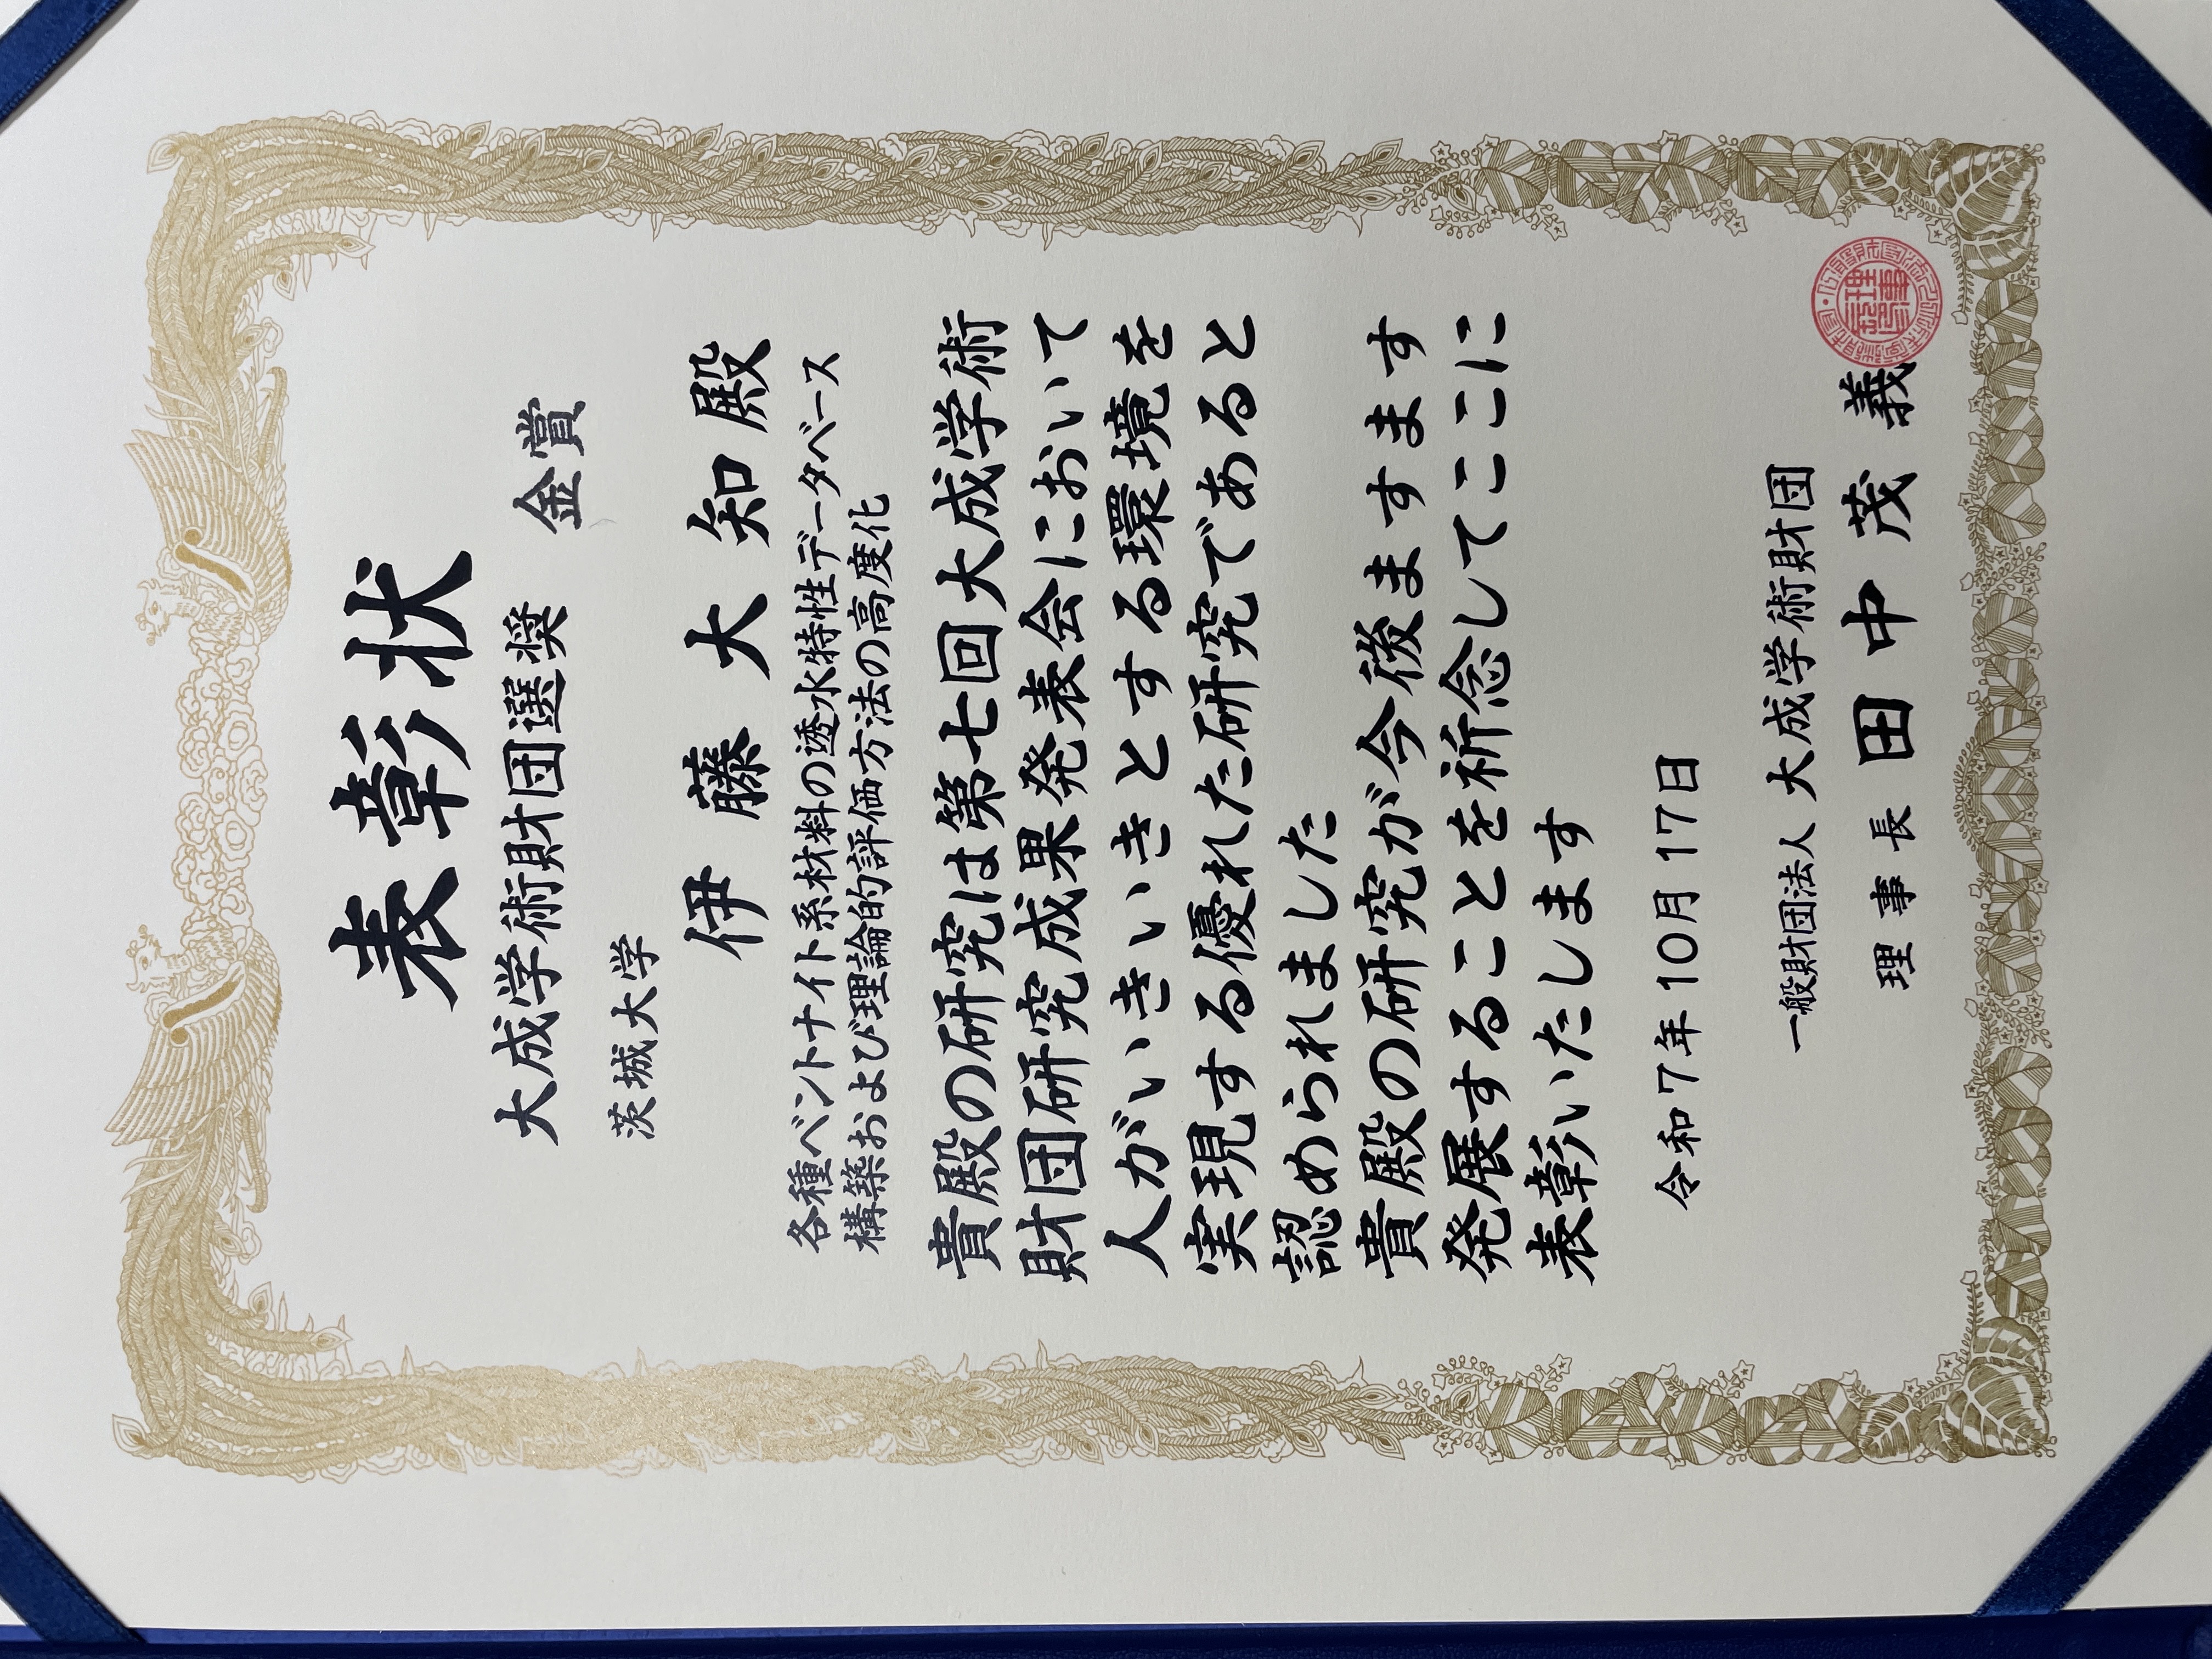 表彰状
大成学術財団選奨 金賞
茨城大学
伊藤大知殿
各種ベントナイト系材料の透水特性データベース
構築および理論的評価方法の高度化
貴殿の研究は第七回大成学術
財団研究成果発表会において
人がいきいきとする環境を
実現する優れた研究であると
認められました
貴殿の研究が今後ますます
発展することを祈念してここに
表彰いたします
令和7年10月17日
一般財団法人 大成学術財団
理事長 田中茂義